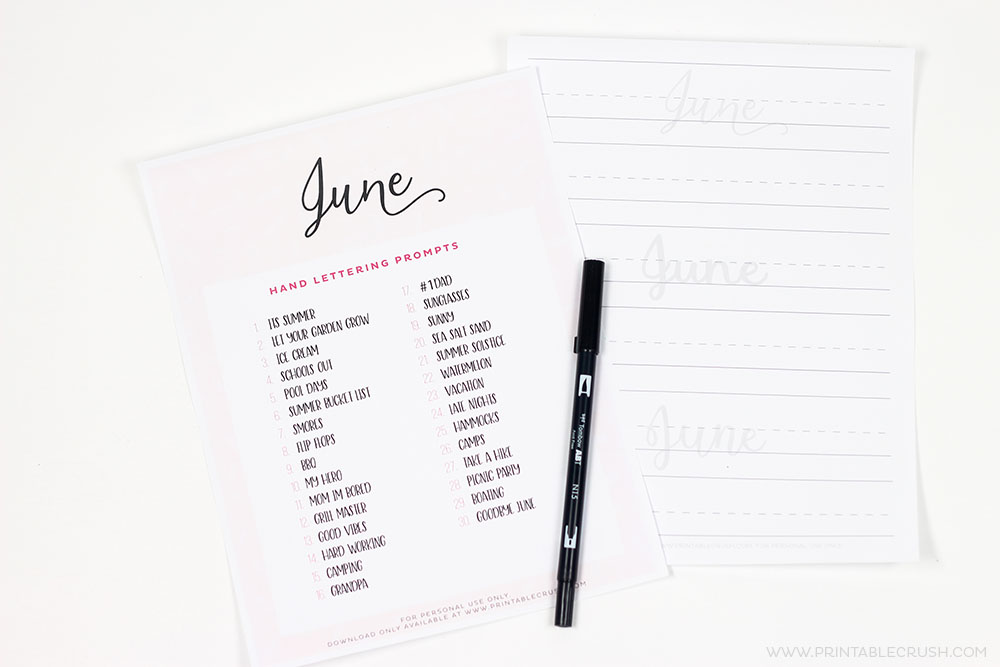 June
HAND LETTERING PROMPTS
1. ITS SUMMER
2. LET YOUR GARDEN GROW
3. ICE CREAM
4. SCHOOLS OUT
5. POOL DAYS
6. SUMMER BUCKET LIST
7. SMORES
8. FLIP FLOPS
9. BBQ
10. MY HERO
11. MOM IM BORED
12. GRILL MASTER
13. GOOD VIBES
14. HARD WORKING
15. CAMPING
16. GRANDPA
17. #1 DAD
18. SUNGLASSES
19. SUNNY
20. SEA SALT SAND
21. SUMMER SOLSTICE
22. WATERMELON
23. VACATION
24. LATE NIGHTS
25. HAMMOCKS
26. CAMPS
27. TAKE A HIKE
28. PICNIC PARTY
29. BOATING
30. GOODBYE JUNE
FOR PERSONAL USE ONLY
DOWNLOAD ONLY AVAILABLE AT WWW.PRINTABLECRUSH.COM
June
June
June
WWW.PRINTABLECRUSH.COM FOR PERSONAL USE ONLY
Tombow ABT
N15
WWW.PRINTABLECRUSH.COM